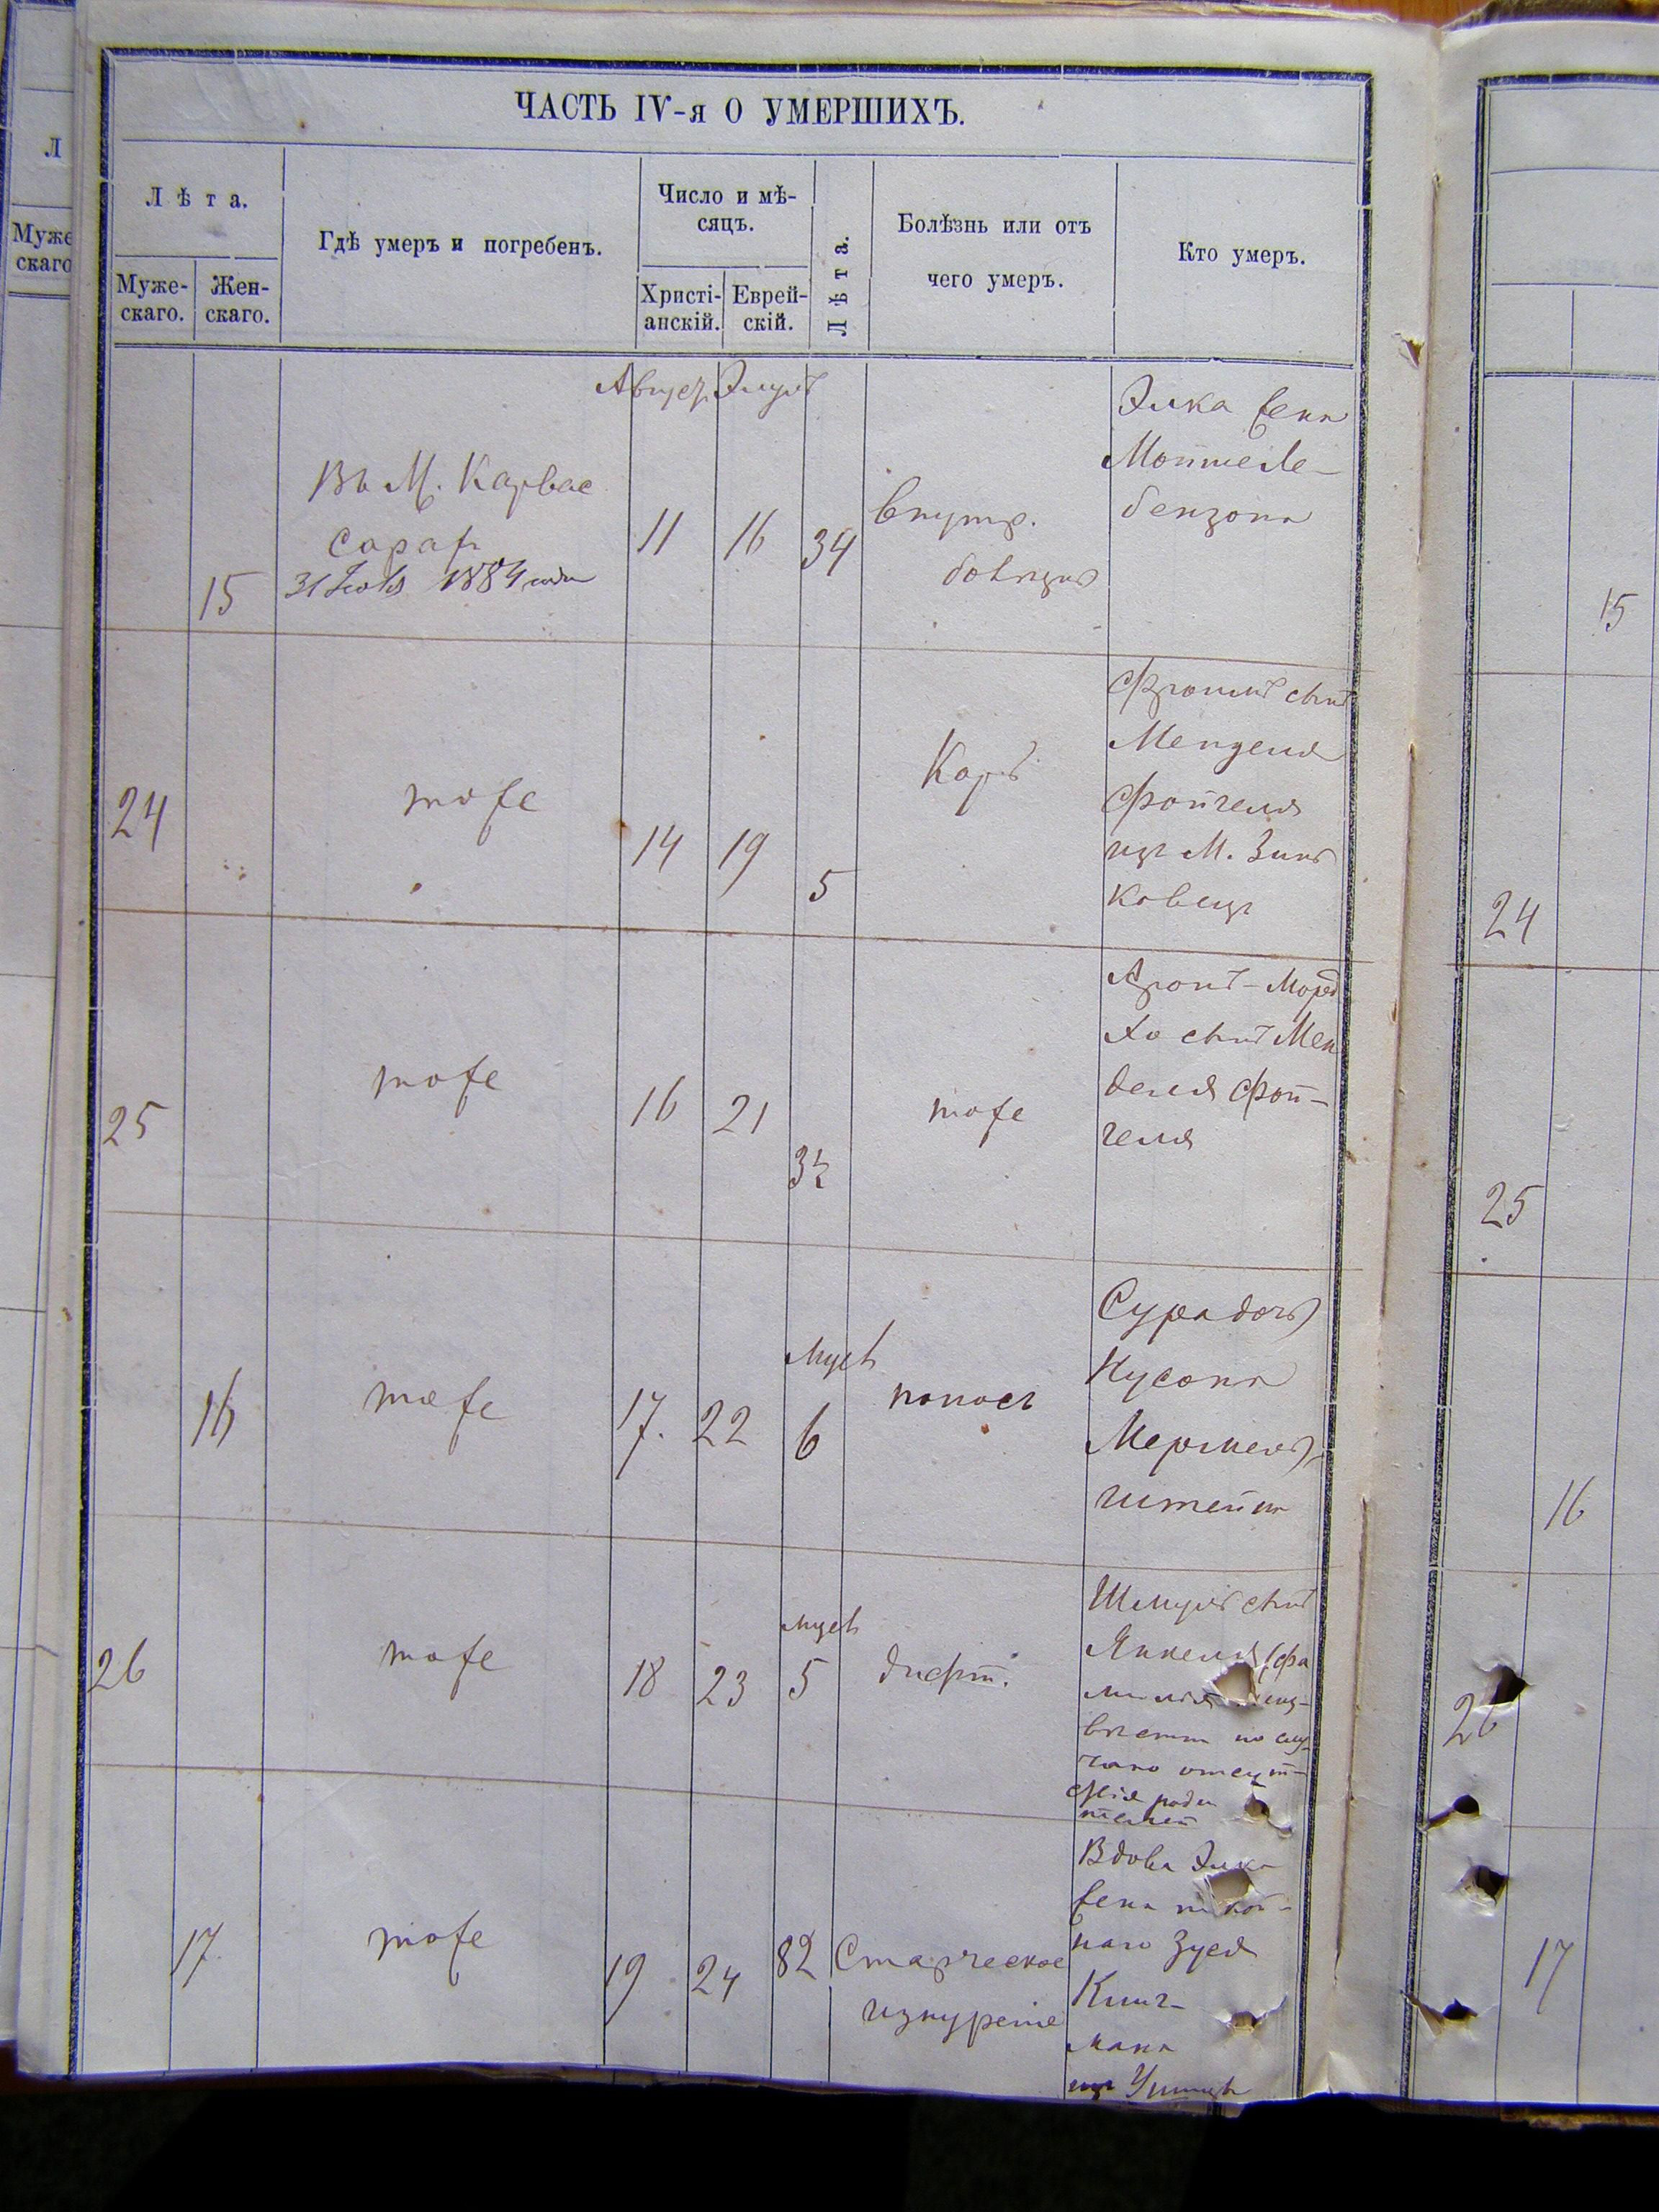 Л
Муже
скаго
ЧАСТЬ IV-я О УМЕРШИХЪ.
Лѣта.
Муже-
скаго.
Жен-
скаго.
Гдѣ умеръ и погребенъ.
Число и мѣ-
сяцъ.
Христі-
анскій.
Еврей-
скій.
Лѣта.
Болѣзнь или отъ
чего умеръ.
Кто умеръ.
Август Элулъ
15
Въ М. Карвас
11
16
34
внутр.
Элка жена
Мошке Ле-
бензона
24
тоже
14
19
5
Корь
Фроимъ сынъ
Менделя
Фойгеля
изъ М. Зинь
ковецъ
25
тоже
16
21
3½
тоже
Аронъ-Морд
ко сынъ Мен
деля Фой-
геля
16
тоже
17.
22
мцев
6
поносъ
Сура дочь
Нусона
штейна
26
тоже
18
23
мцев
5
дифт.
Шмуль сынъ
Янкеля (фа
милія
вѣстна по слу-
чаю отсут-
ствія роди
телей
17
тоже
19
24
82
Старческое
изнуреніе
Вдова Элка
жена покой-
наго Зуся
мана
15
24
25
16
26
17